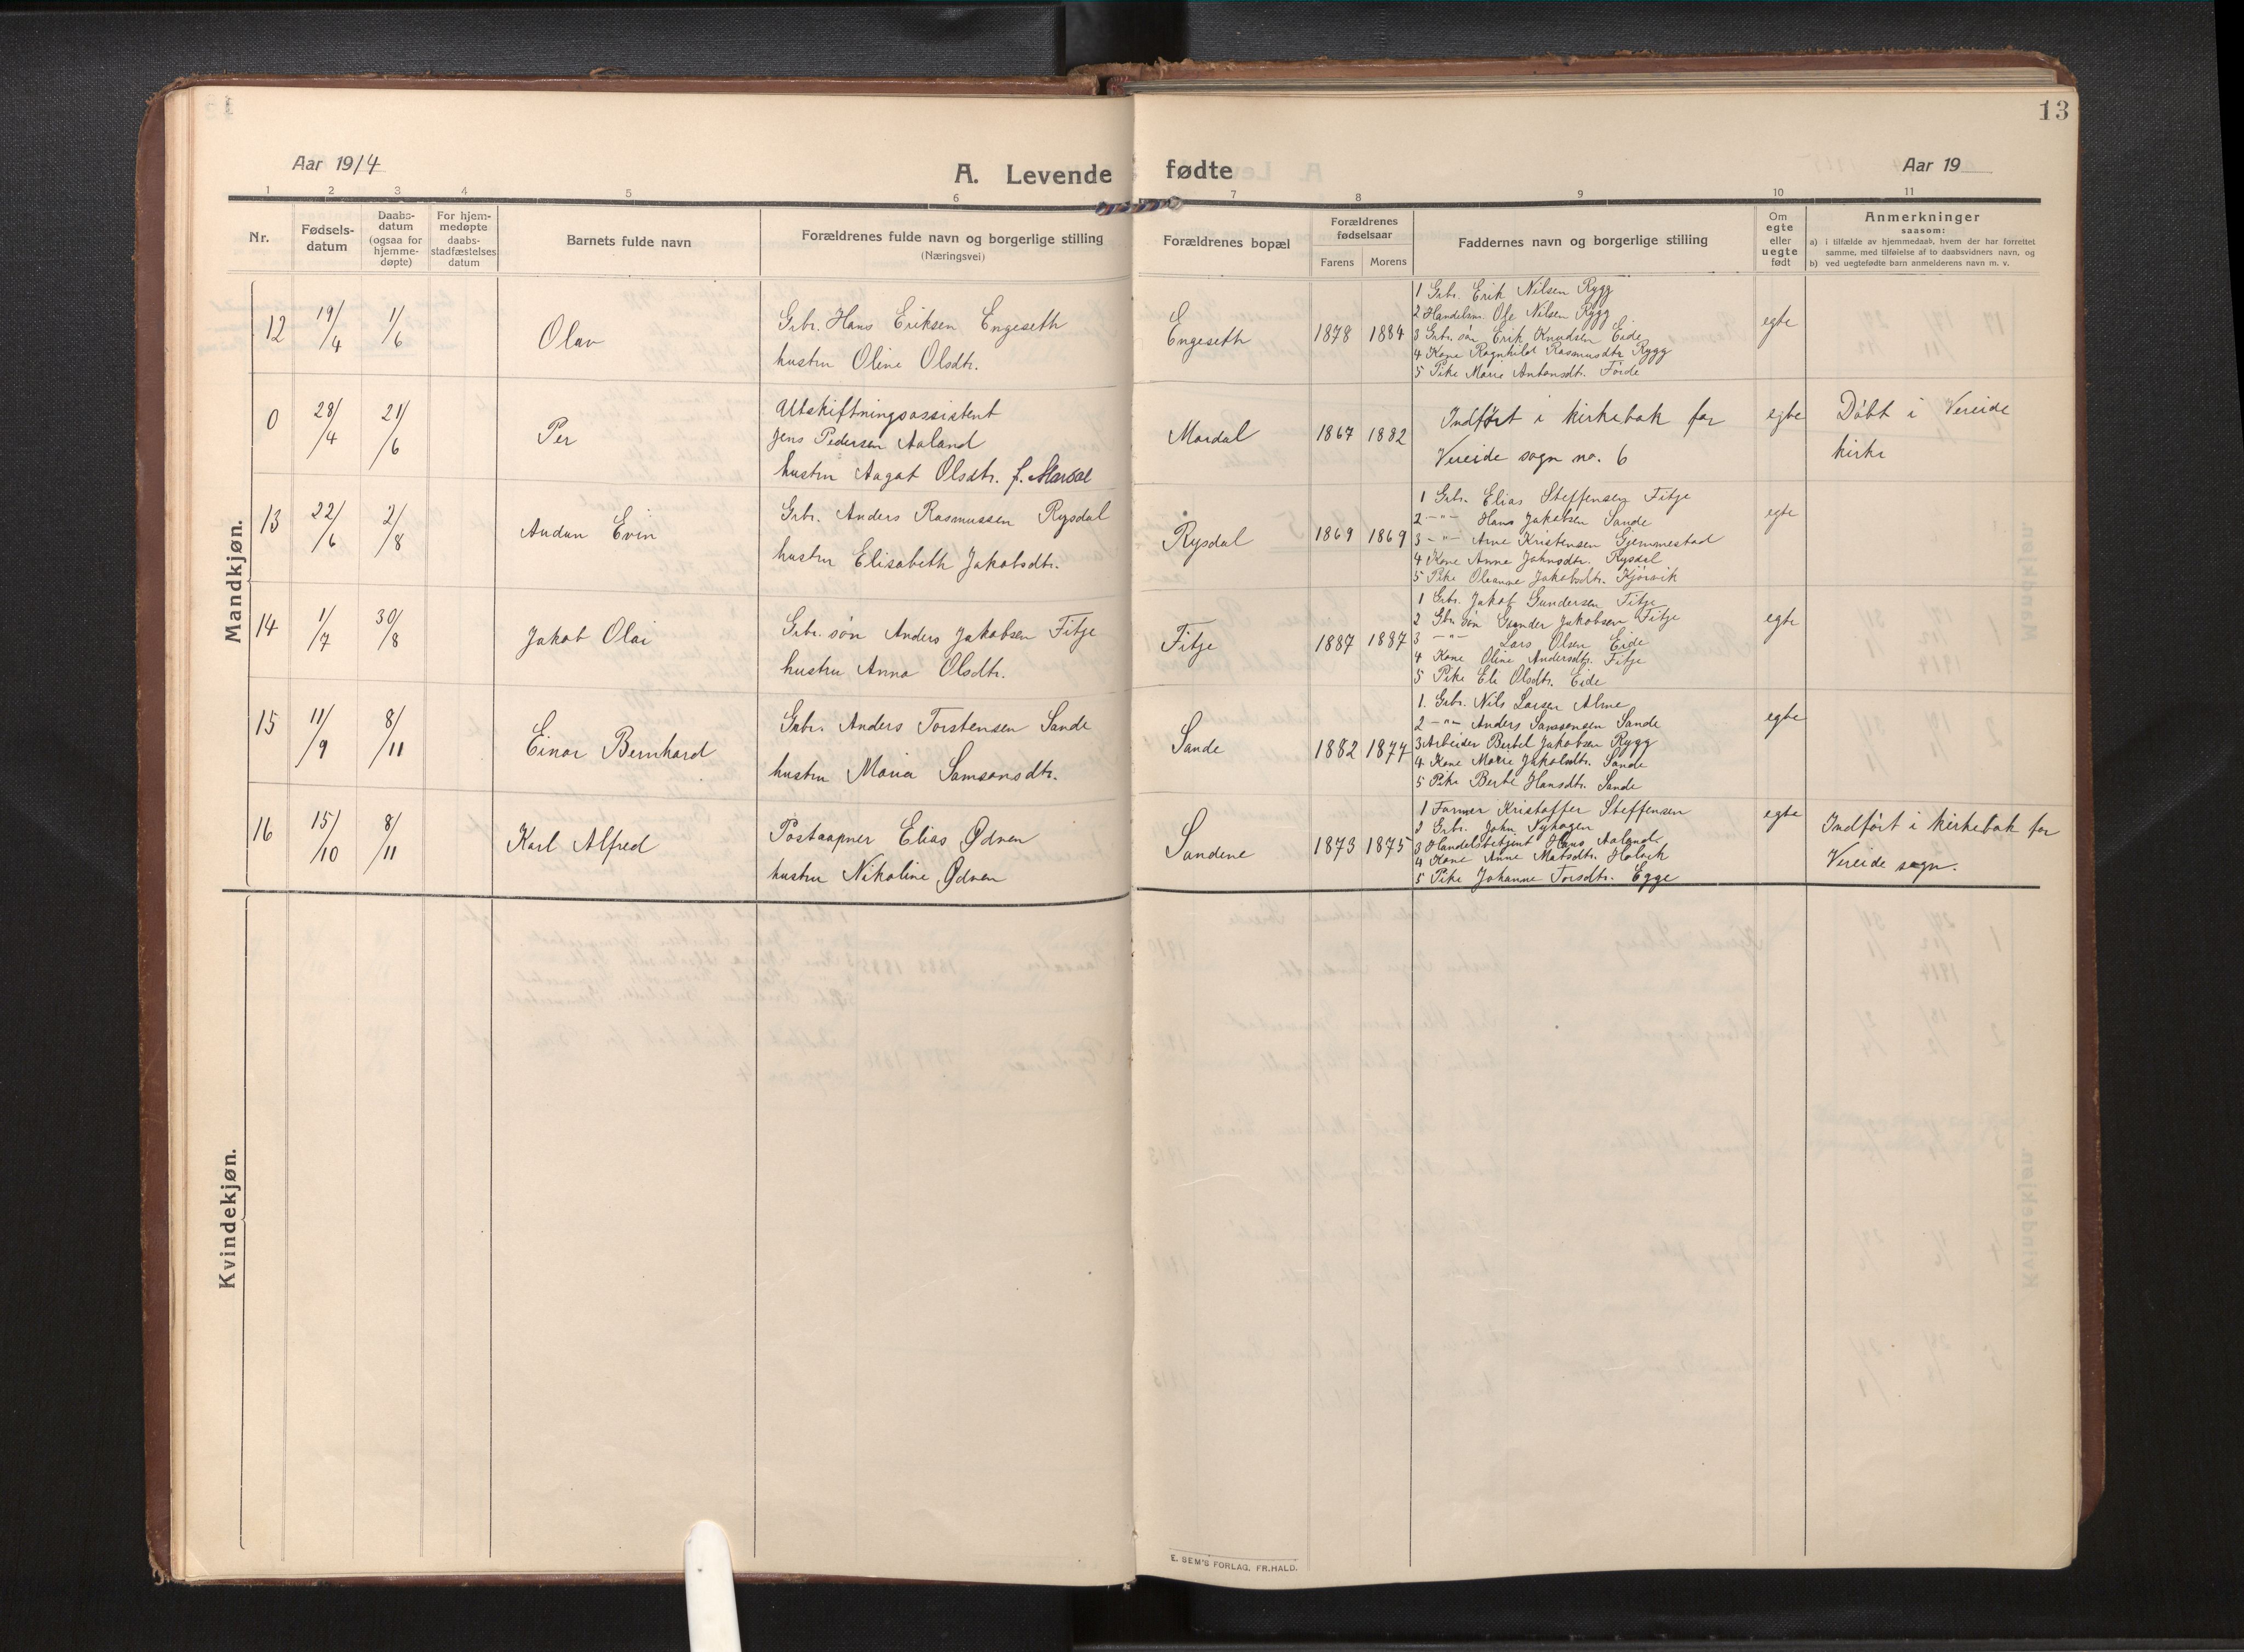 13
Aar 1914
A. Levende fødte
Aar 19
1 2 3 4 5 6 7 8 9 10 11
Nr.
Fødsels-
datum
Daabs-
datum
(ogsaa for
hjemme-
døpte)
For hjem-
medøpte
daabs-
stadfæstelses
datum
Barnets fulde navn
Forældrenes fulde navn og borgerlige stilling
(Næringsvei)
Forældrenes bopæl
Forældrenes
fødselsaar
Farens Morens
Faddernes navn og borgerlige stilling
Om
egte
eller
uegte
født
Anmerkninger
saasom:
a) i tilfælde av hjemmedaab, hvem der har forrettet
samme, med tilføielse af to daabsvidners navn, og
b) ved uegtefødte barn anmelderens navn m. v.
Mandkjøn.
12 19/4 1/6 Olav
Grbr. Hans Eriksen Engeseth
hustru Oline Olsdtr.
Engeseth 1878 1884
1 Grbr. Erik Nilsen Rygg
2 Handelsm. Ole Nilsen Rygg
3 Grbr. søn Erik Knudsen Eide
4 Kone Ragnhild Rasmusdtr Rygg
5 Pike Marie Antonsdtr. Förde
egte
0 28/4 21/6 Per
Utskiftningsassistent
Jens Pedersen Aaland
hustru Aagot Olsdtr. f. Mardal
Mardal 1867 1882
Indført i kirkebok for
Vereide sogn no. 6
egte
Døbt i Vereide
kirke
13 22/6 2/8 Audun Evin
Grbr. Anders Rasmussen Rysdal
hustru Elisabeth Jakobsdtr.
Rysdal 1869 1869
1 Grbr. Elias Steffensen Fitje
2 -"- Hans Jakobsen Sande
3 -"- Arne Kristensen Gjemmestad
4 Kone Anne Johnsdtr. Rysdal
5 Pike Oleanne Jakobsdtr. Kjörvik
egte
14 1/7 30/8 Jakob Olai
Grbr. søn Anders Jakobsen Fitje
hustru Anna Olsdtr.
Fitje 1887 1887
1 Grbr. Jakob Gundersen Fitje
2 Gbr. søn Gunder Jakobsen Fitje
3 -"- Lars Olsen Eide
4 Kone Oline Andersdtr. Fitje
5 Pike Eli Olsdtr. Eide
egte
15 11/9 8/11 Einar Bernhard
Grbr. Anders Torstensen Sande
hustru Maria Samsonsdtr.
Sande 1882 1877
1. Grbr. Nils Larsen Alme
2 -"- Anders Samsonsen Sande
3 Arbeider Bertel Jakobsen Rygg
4 Kone Marie Jakobsdtr. Sande
5 Pike Berte Hansdtr. Sande
egte
16 15/10 8/11 Karl Alfred
Postaapner Elias Ødven
hustru Nikoline Ødven
Sandene 1873 1875
1 Farmer Kristoffer Steffensen
2 Grbr. John Nyhagen
3 Handelsbetjent Hans Aaland
4 Kone Anne Matsdtr. Holvik
5 Pike Johanne Torsdtr. Egge
egte
Indført i kirkebok for
Vereide sogn.
Kvindekjøn.
E. SEM'S FORLAG, FR.HALD.